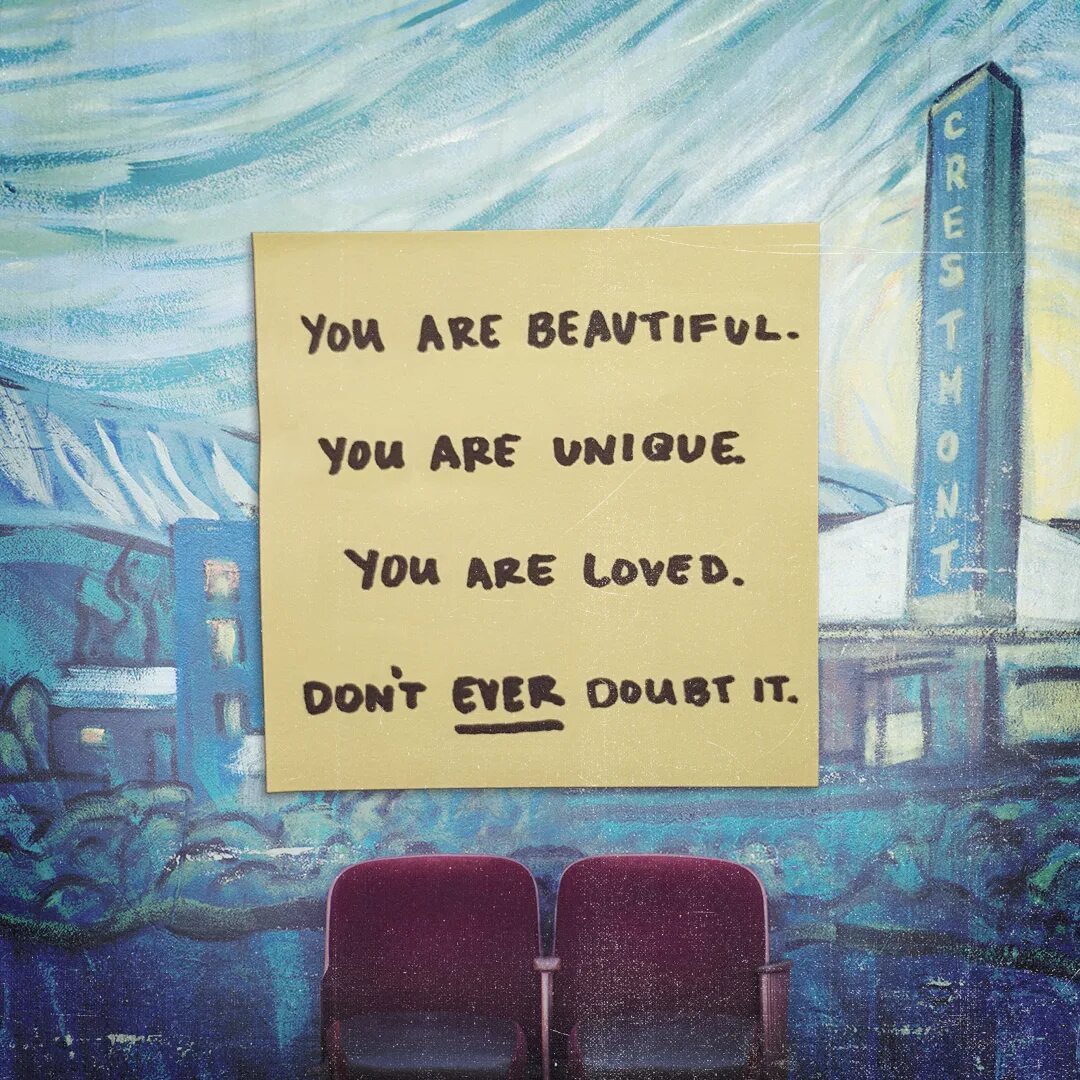 YOU ARE BEAUTIFUL.
YOU ARE UNIQUE.
YOU ARE LOVED.
DON'T EVER DOUBT IT.
CRESTMONT